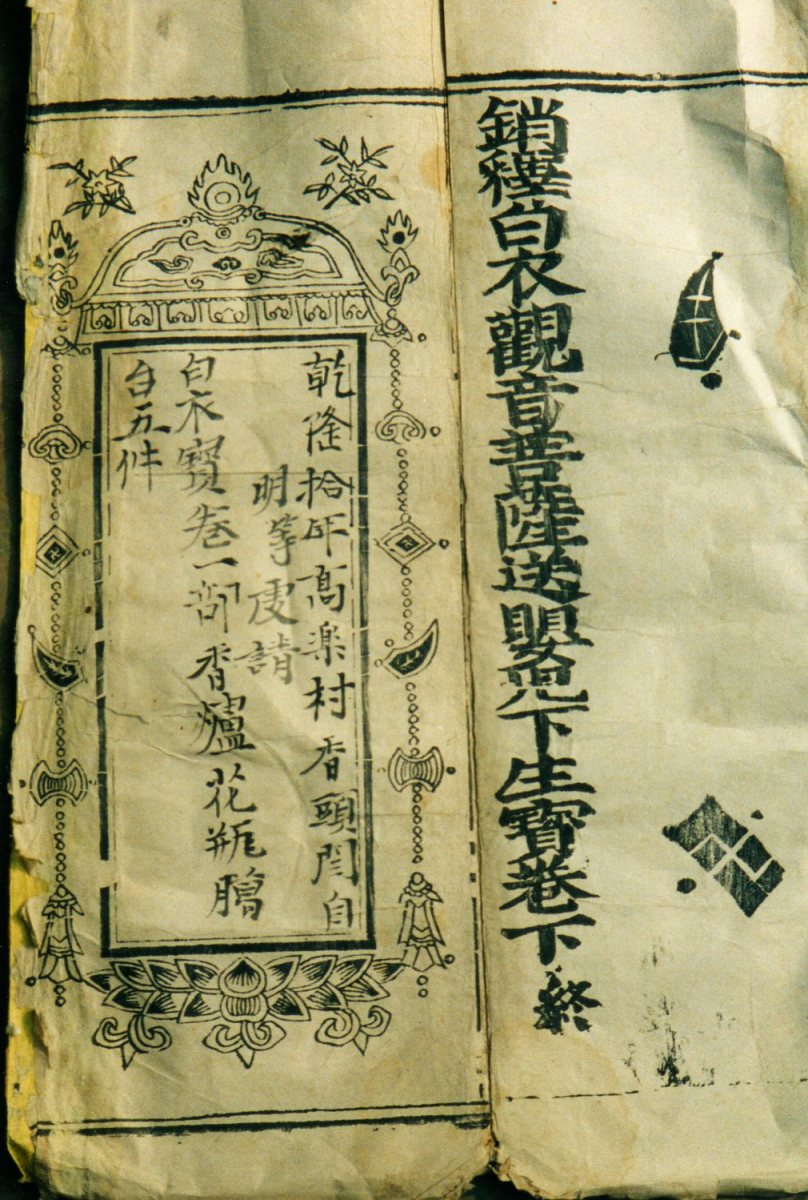 銷釋白衣觀音菩薩送嬰兒下生寶卷下終
乾隆拾年髙楽村香頭閆自
明等虔請
白衣寳卷一部香爐花瓶臈
台五件